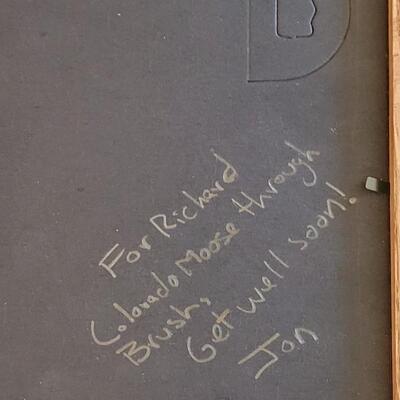 For Richard
Colorado Moose through
Brush,
Get well soon!
Jon